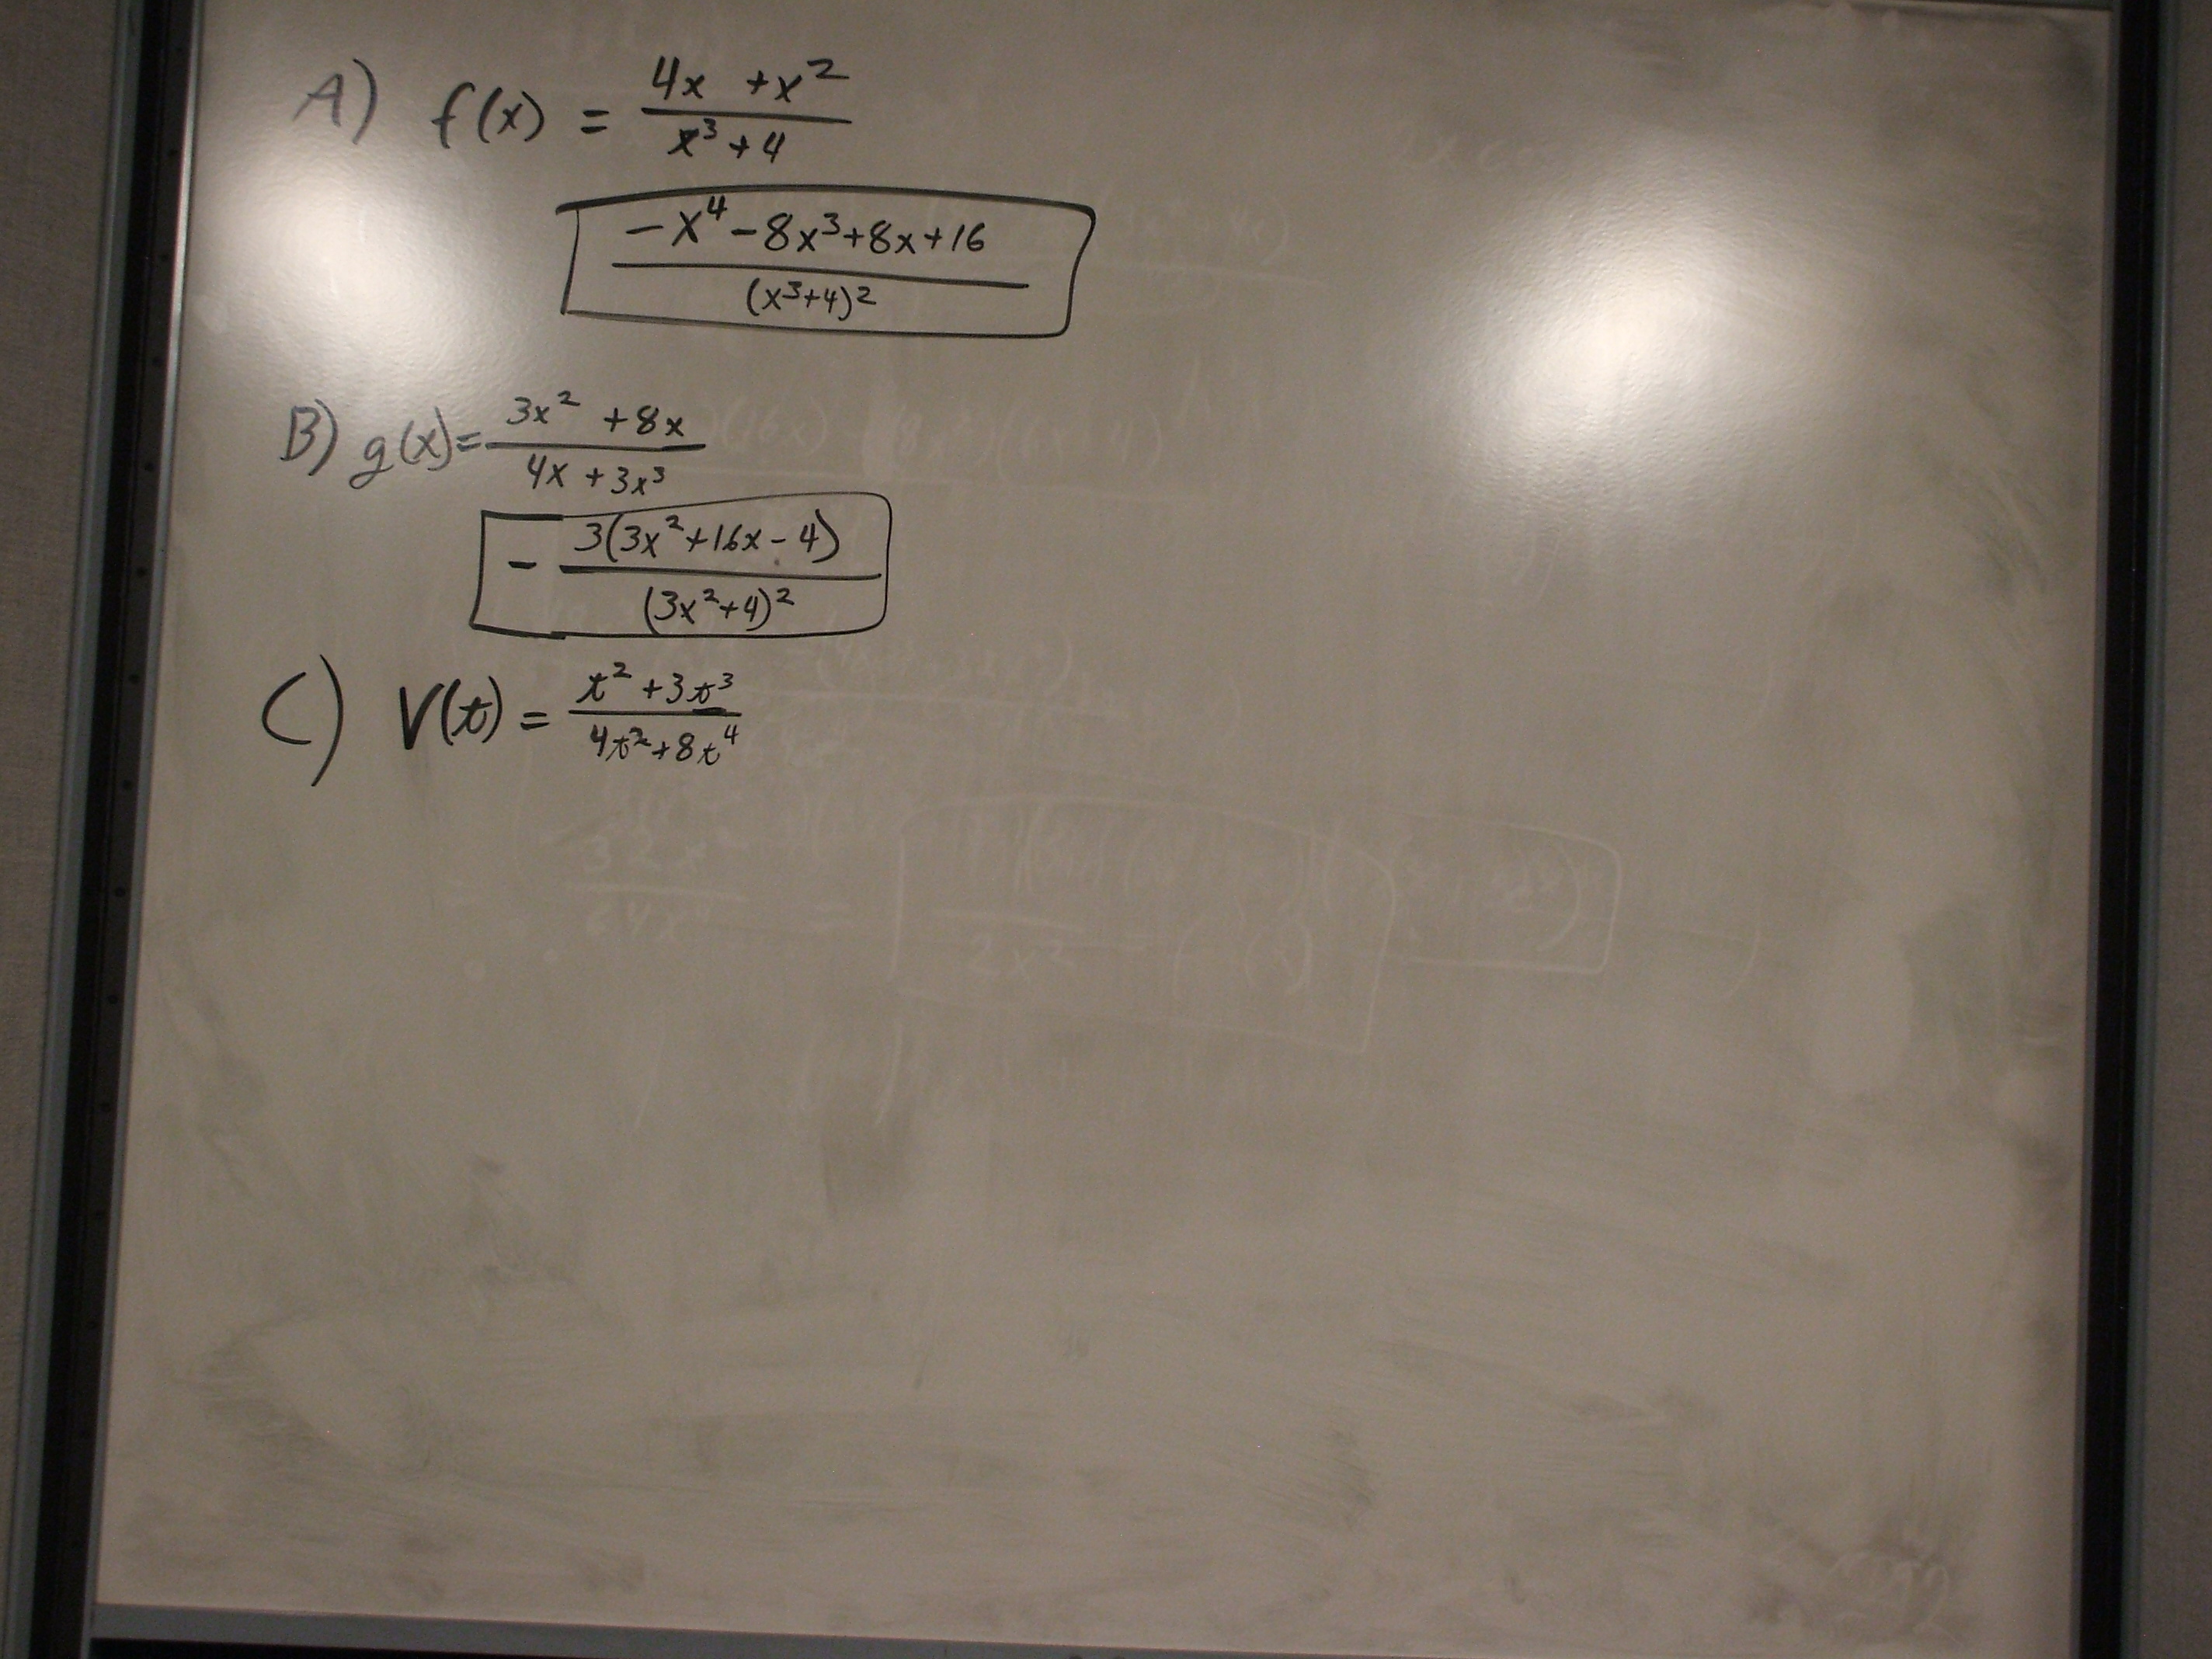 A) f(x) = (4x + x²)/(x³ + 4)
(-x⁴ - 8x³ + 8x + 16)/(x³+4)²
B) g(x) = (3x² + 8x)/(4x + 3x³)
- 3(3x² + 16x - 4)/(3x² + 4)²
C) V(t) = (t² + 3t³)/(4t² + 8t⁴)